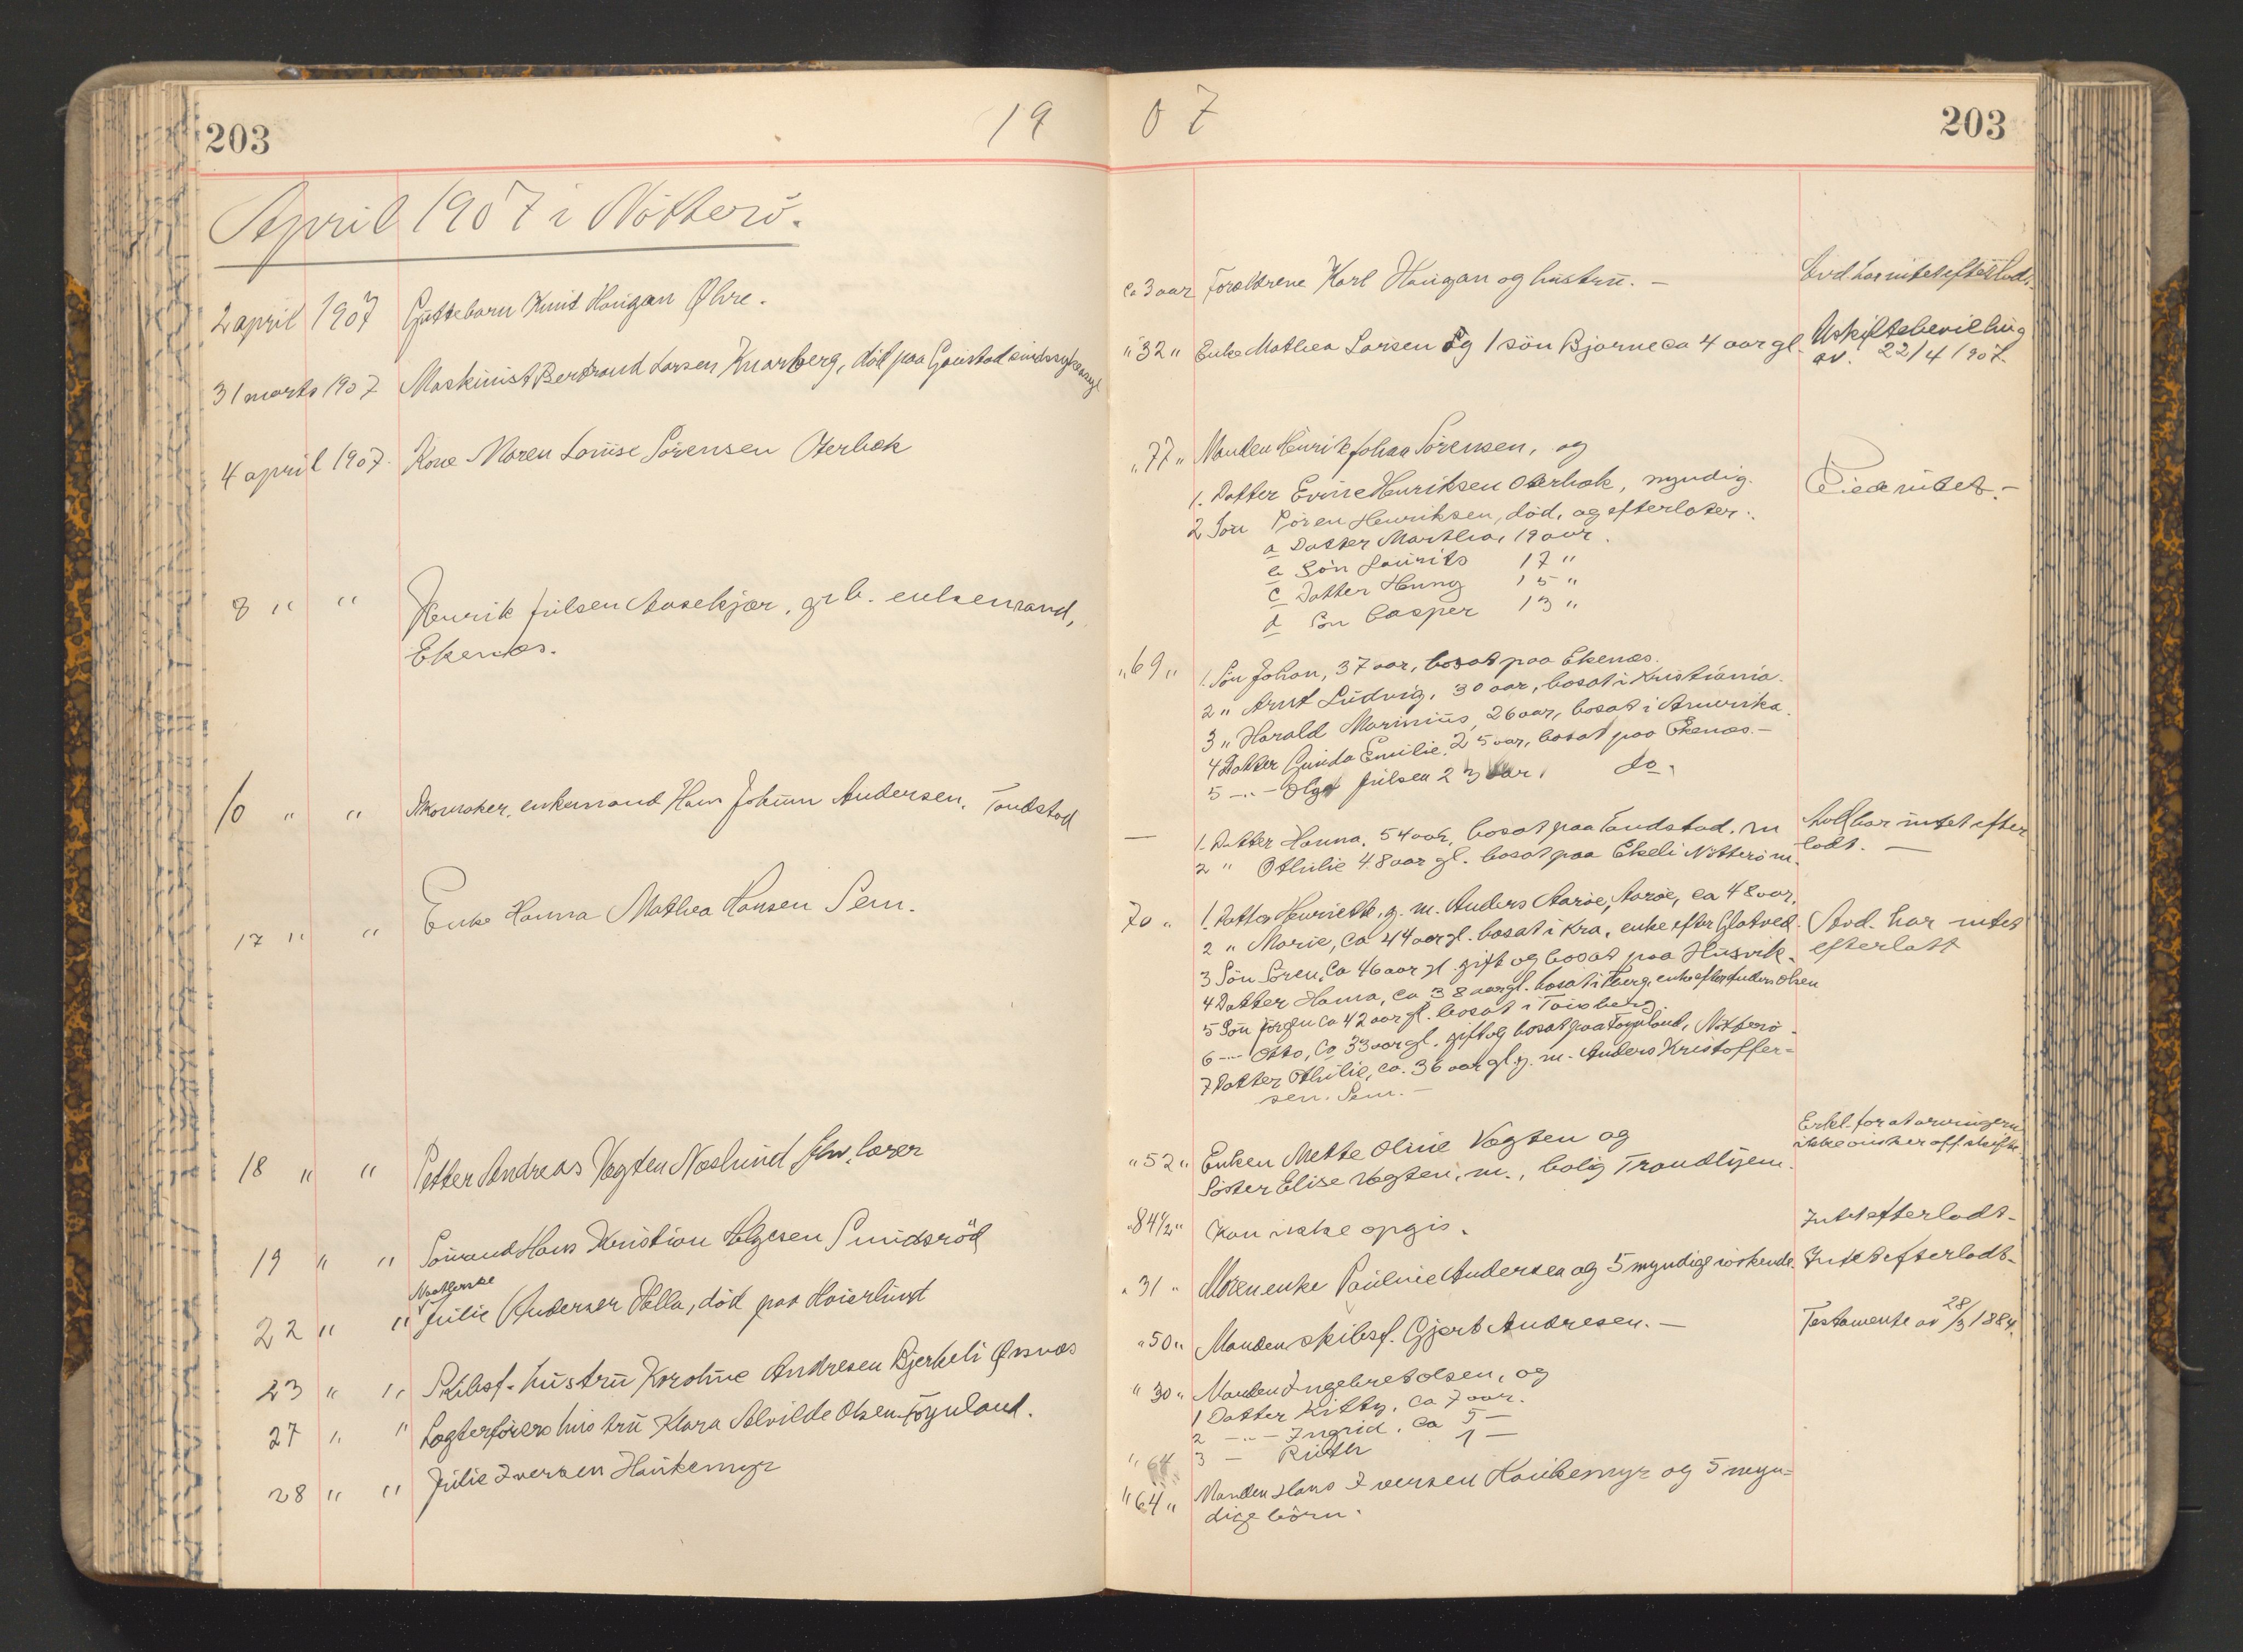 203
19 07
203
April 1907 i Nötterö.
2 april 1907 Guttebarn Knut Haugan Øhre.
ca 3 aar Forældrene Karl Haugan og hustru. —
Avd har intet efterladt.
31 marts 1907 Maskinist Bertrand Larsen Knarberg, död paa Gaustad sindssykeasyl
" 32 " Enke Mathea Larsen og 1 sön Bjarne ca 4 aar gl.
Uskiftebevilling
av. 22/4 1907.
4 april 1907. Kone Maren Louise Sörensen Oterbæk
" 77 " Manden Henrik Johan Sörensen, og
1. Datter Evine Henriksen Oterbæk, myndig.
2 Sön Sören Henriksen, död, og efterlater:
a Datter Marthea, 19 aar.
b Sön Laurits 17 "
c Datter Henny 15 "
d Sön Casper 13 "
Eied intet. —
8 " " Henrik Julsen Aasekjær, grb. enkemand,
Ekenæs.
" 69 " 1. Sön Johan, 37 aar, bosat paa Ekenæs.
2 " Arnt Ludvig, 30 aar, bosat i Kristiania.
3 " Harald Marinius, 26 aar, bosat i Amerika.
4 Datter Gunda Emilie, 25 aar, bosat paa Ekenæs. —
5 — " — Olga Julsen 23 aar, do.
10 " " Skomaker, enkemand Hans Johann Andersen, Tandstad
— 1. Datter Hanna, 54 aar, bosat paa Tandstad. m
2 " Othilie 48 aar gl. bosat paa Ekeli Nötterö m.
Avd har intet efter
ladt. —
17 " " Enke Hanna Mathea Hansen Sem.
70 " 1. Datter Henriette, g. m. Anders Aaröe, Aaröe, ca 48 aar,
2 " Marie, ca 44 aar gl. bosat i Kra, enke efter Glatved.
3 Sön Sören, ca 46 aar gl. gift og bosat paa Husvik.
4 Datter Hanna, ca 38 aar gl. bosat i Tberg, enke efter Anders Olsen
5 Sön Jörgen ca 42 aar gl. bosat i Tönsberg.
6 — " — Otto, ca 33 aar gl. gift og bosat paa Föynland, Nötterö.
7 Datter Othilie, ca. 36 aar gl. g. m. Anders Kristoffer=
sen. Sem. —
Avd. har intet
efterlatt
18 " " Petter Andreas Vogten Næslund fhv. lærer
" 52 " Enken Mette Oline Vogten og
Söster Elise Vogten, m., bolig Trondhjem.
Erkl. for at arvingerne
ikke önsker off. skifte.
19 " " Sömand Hans Kristian Helgesen Smidsröd
" 84 1/2 " Kan ikke opgis.
Intet efterladt.
22 " " Julie Andersen Hella, död paa Haierlund
" 31 " Moren enke Pauline Andersen og 5 myndige söskende.
Intet efterladt.
23 " " Skibsf. hustru Karoline Andresen Bjerkeli Ørsnæs
" 50 " Manden skibsf. Gjert Andresen. —
Testamente av 28/3 1884.
27 " " Lægterförers hustru Klara Alvilde Olsen Föynland.
" 30 " Manden Ingebret Olsen, og
1 Datter Kitty, ca 7 aar.
2 — " — Ingrid, ca 5 —
3 — Ruth 1 —
" 64
28 " " Julie Iversen Haukemyr
" 64 " Manden Hans Iversen Haukemyr og 5 myn=
dige börn.